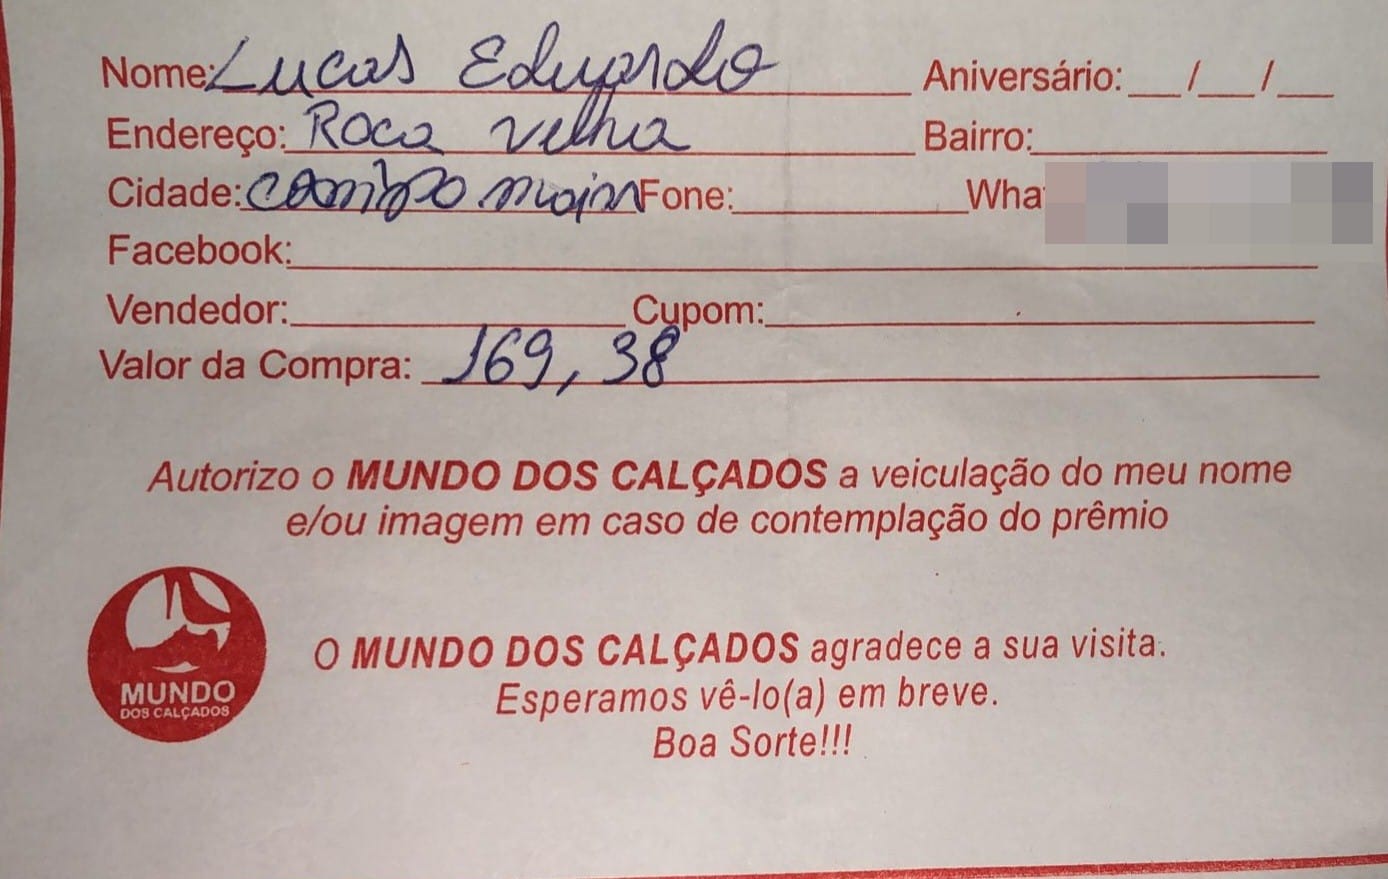 Nome: Lucas Eduardo Aniversário: __/__/__
Endereço: Roca Velha Bairro:
Cidade: campo maior Fone: Wha
Facebook:
Vendedor: Cupom:
Valor da Compra: 169,38
Autorizo o MUNDO DOS CALÇADOS a veiculação do meu nome
e/ou imagem em caso de contemplação do prêmio
O MUNDO DOS CALÇADOS agradece a sua visita.
Esperamos vê-lo(a) em breve.
Boa Sorte!!!
MUNDO
DOS CALÇADOS